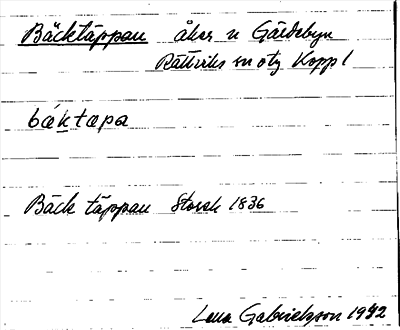 Bäcktäppan åker n Gärdebyn
Rättviks sn otg Koppl
bäktæpa
Bäck täppan Storsk 1836
Lena Gabrielsson 1942